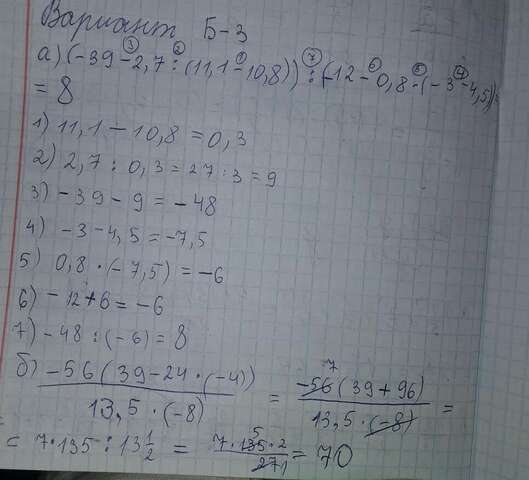 Вариант Б-3
а) (-39-2,7:(11,1-10,8)):(-12-0,8·(-3-4,5))=
= 8
1) 11,1 - 10,8 = 0,3
2) 2,7 : 0,3 = 27 : 3 = 9
3) -39 - 9 = -48
4) -3 - 4,5 = -7,5
5) 0,8 · (-7,5) = -6
6) -12 + 6 = -6
7) -48 : (-6) = 8
б) -56(39-24·(-4)) / 13,5·(-8) = -56(39+96) / 13,5·(-8) =
= 7·135 : 13 1/2 = 7·135·2 / 27 = 70